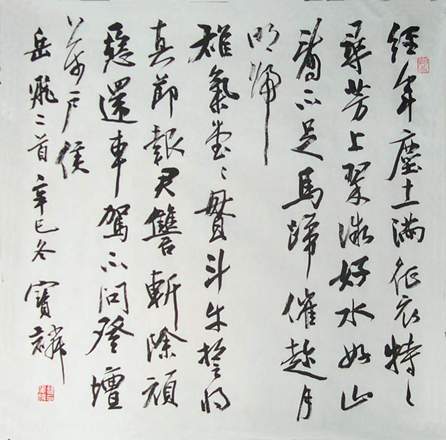 經年塵土滿征衣特〻
尋芳上翠微好水好山
看不足馬蹄催趁月
明歸
雄氣堂〻貫斗牛誓將
真節報君讐斬除頑
惡還車駕不問登壇
萬戶侯
岳飛二首辛巳冬 寶麟